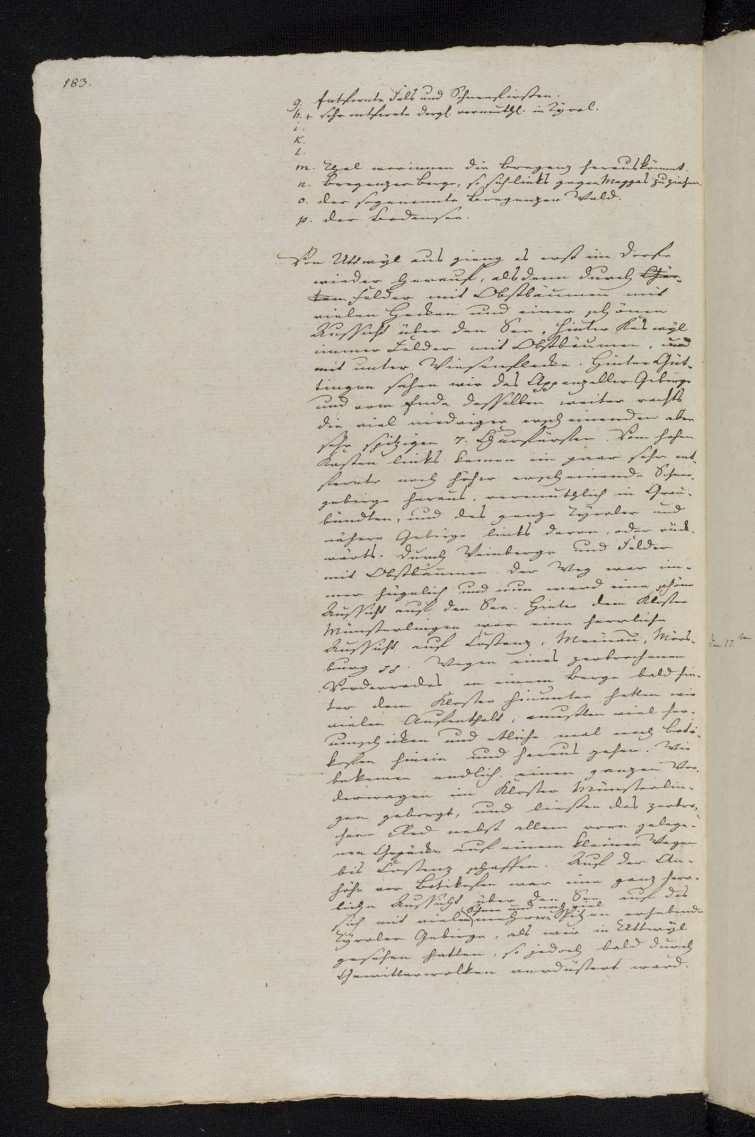 183.
g. Entfernte Fels und Schneefirsten.
h. + sehr entfernte dergl. vermuthl. in Tyrol.
i.
k.
l.
m. Thal worinnen die Bregenz herauskömmt.
n. Bregenzer Berge, so sich links gegen zuziehen.
o. der sogenannte Bregenzer Wald.
p. der Bodensee.
Von Uttwyl aus gieng es erst im Dorfe
wieder herauf, alsdenn durch Gär-
ten Felder mit Obstbäumen mit
vielen Hecken und einer schönen
Aussicht über den See, hinter Keswyl
immer Felder mit Obstbäumen, und
mit unter Wiesenflecke. Hinter Güt-
tingen sahen wir das Appenzeller Gebirge
und vom Ende desselben weiter rechts
die viel niedriger erscheinenden aber
sehr spitzigen 7. Churfürsten. Vom hohen
Kasten links kamen ein paar sehr ent-
fernte noch höher erscheinende Schnee-
gebirge heraus, vermuthlich in Grau-
bündten, und das ganze Tyroler und
nähere Gebirge links davon, oder rück-
wärts. Durch Weinberge und Felder
mit Obstbäumen. Der Weg war im-
mer hügelich und nun ward eine schöne
Aussicht auf den See. Hinter dem Kloster
Münsterlingen war eine herrliche
Aussicht auf Costenz, Meinau, Mörs-
burg pp. Wegen eines zerbrochenen
Vorderrades an einem Berge bald hin-
ter dem Kloster hinunter hatten wir
vielen Aufenthalt, mußten viel her-
umschicken und etliche mal nach Boti-
kofen hinein und heraus gehen. Wir
bekamen endlich einen ganzen Vor-
derwagen im Kloster Münsterlin-
gen geborgt, und ließen das zerbro-
chene Rad nebst allem vorn gelege-
nen Gepäcke auf einem kleinen Wagen
bis Costenz schaffen. Auf der An-
höhe vor Botikofen war eine ganz herr-
liche Aussicht über den See auf das
sich mit vielen Schnee und noch viel mehreren Spitzen erhebende
Tyroler Gebirge, als wir in Uttwyl
gesehen hatten, so jedoch bald durch
Gewitterwolken verdüstert ward.
den 17. ten